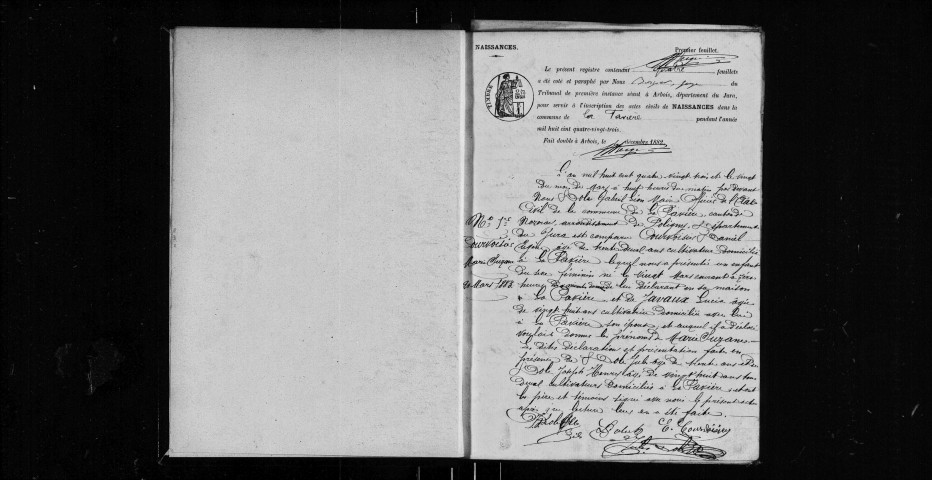 NAISSANCES.
Premier feuillet.
Le présent registre contenant quatre feuillets
a été coté et paraphé par Nous juge du
Tribunal de première instance séant à Arbois, département du Jura,
pour servir à l'inscription des actes civils de NAISSANCES dans la
commune de La Favière pendant l'année
mil huit cent quatre-vingt-trois.
Fait double à Arbois, le décembre 1882
TIMBRE
L'an mil huit cent quatre vingt trois et le vingt
du mois de Mars à huit heures du matin par devant
Nous Dole Gabriel Léon Maire Officier de l'Etat
Civil de la commune de La Favière, canton de
Nozeroy, arrondissement de Poligny, département
du Jura est comparu Courvoisier Daniel
Eugène âgé de trente deux ans cultivateur domicilié
à la Favière lequel nous a présenté un enfant
du sexe féminin né le vingt Mars courant à
heures du matin de lui déclarant en sa maison
à La Favière et de Javaux Lucie âgée
de vingt huit ans cultivatrice domiciliée avec lui
à La Favière son épouse et auquel il a déclaré
vouloir donner le prénom de Marie Suzane
Les dites déclaration et présentation faite en
présence de Dole Jules âgé de trente ans et de
Dole Joseph Henry âgé de vingt huit ans tous
deux cultivateurs domiciliés à La Favière et ont
les père et témoins signé avec nous le présent acte
après que lecture leur en a été faite.
N° 1er
Courvoisier
Marie Suzane
20 Mars 1883
Dole
E. Courvoisier